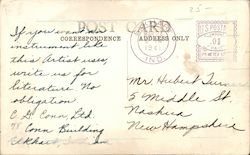 25-
POST CARD
CORRESPONDENCE
ADDRESS ONLY
IND.
U.S. POSTAGE
01
If you want an
instrument like
this Artist uses,
write us for
literature No
obligation
C. G. Conn, Ltd.
Conn Building
Elkhart, Ind
Mr. Hubert
5 Middle St.
Nashua
New Hampshire